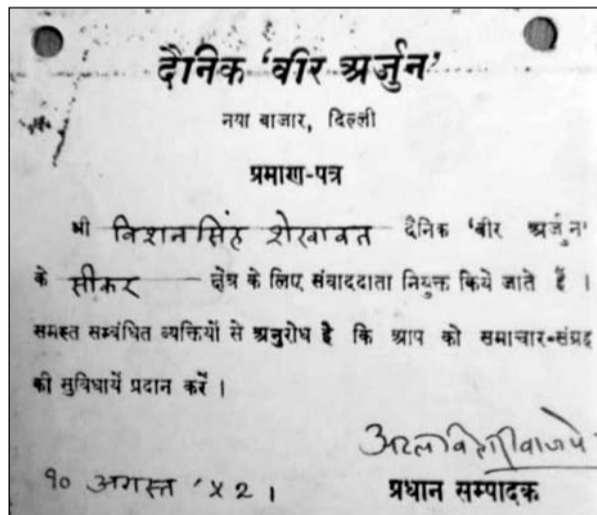 दैनिक 'वीर अर्जुन'
नया बाजार, दिल्ली
प्रमाण-पत्र
श्री विशनसिंह शेखावत दैनिक 'वीर अर्जुन'
के सीकर क्षेत्र के लिए संवाददाता नियुक्त किये जाते हैं ।
समस्त सम्बंधित व्यक्तियों से अनुरोध है कि आप को समाचार-संग्रह
की सुविधायें प्रदान करें ।
अटल बिहारी वाजपे
१० अगस्त '५२ ।
प्रधान सम्पादक